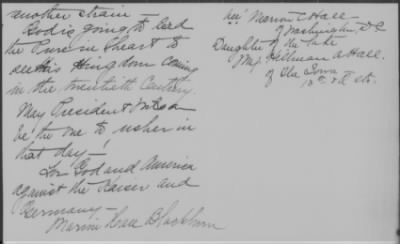 another strain –
God is going to lead
the Pure in Heart to
see His Kingdom coming
in the twentieth Century.
May President Wilson
be the one to usher in
that day –
for God and America
against the Kaiser and
Germany –
Marion Hall Blackburn
Marion E Hall
of Washington, D C
Daughter of the late
Maj. Hillman A Hall.
of Ia Iowa